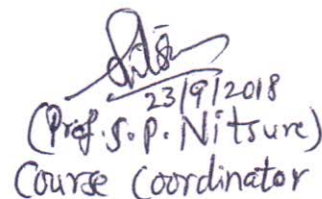 23/9/2018
(Prof. S. P. Nitsure)
Course Coordinator